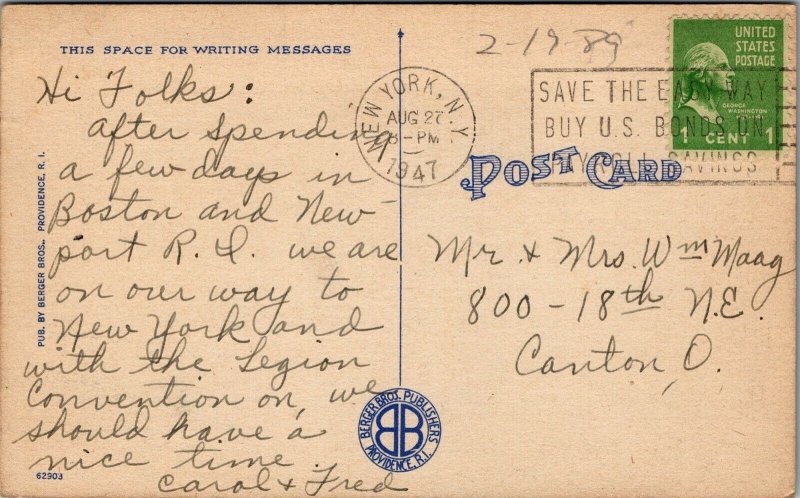 THIS SPACE FOR WRITING MESSAGES
Hi Folks:
After spending
a few days in
Boston and New-
port R.I. we are
on our way to
New York and
with the Legion
Convention on, we
should have a
nice time.
Carol + Fred
PUB. BY BERGER BROS., PROVIDENCE, R. I.
62903
BERGER BROS. PUBLISHERS
BB
PROVIDENCE, R.I.
2-19-89
NEW YORK, N.Y.
AUG 27
8-PM
1947
SAVE THE EASY WAY
BUY U.S. BONDS ON
PAYROLL SAVINGS
UNITED
STATES
POSTAGE
GEORGE
WASHINGTON
1 CENT 1
POST CARD
Mr. + Mrs. Wm Maag
800-18th N.E.
Canton, O.